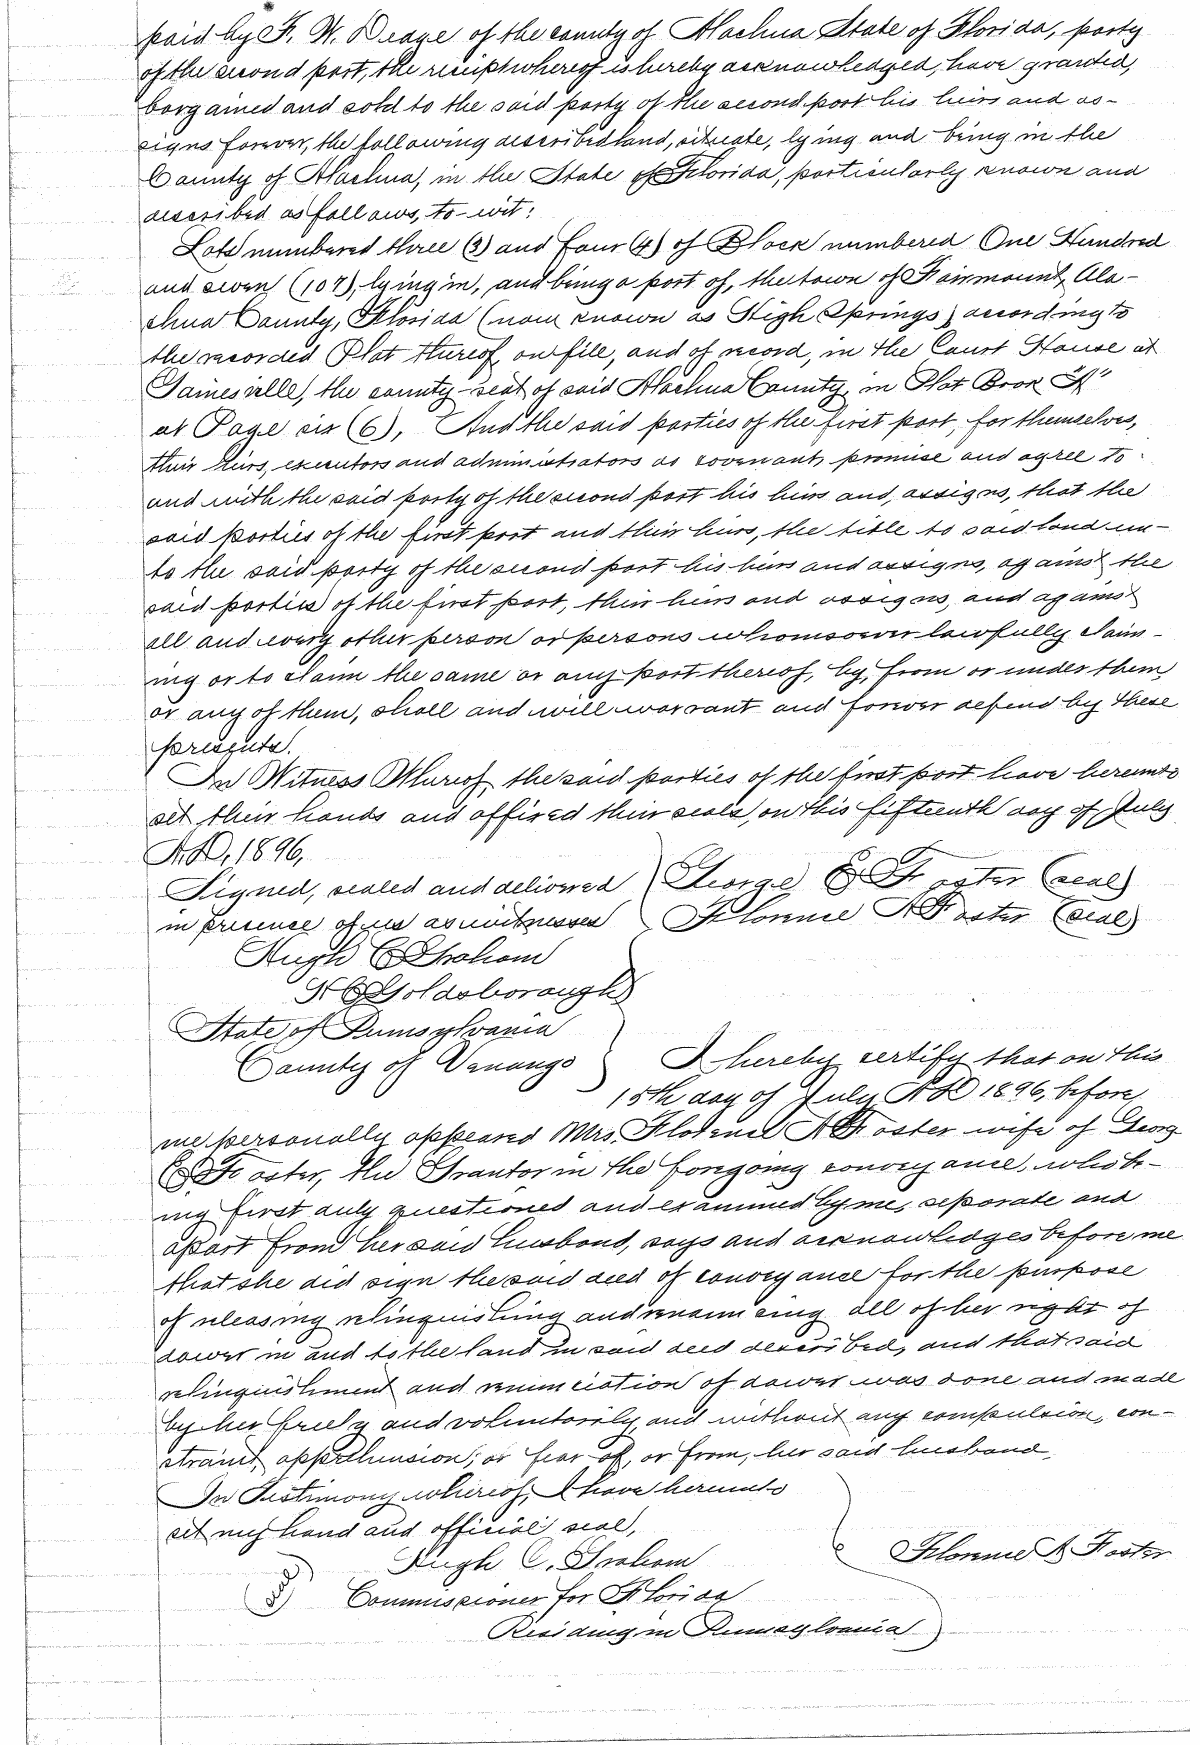 paid by F. W. Deage of the county of Alachua State of Florida, party
of the second part, the receipt whereof is hereby acknowledged, have granted,
bargained and sold to the said party of the second part his heirs and as-
signs forever, the following described land, situate, lying and being in the
County of Alachua, in the State of Florida, particularly known and
described as follows, to-wit:
Lots numbered three (3) and four (4) of Block numbered One Hundred
and seven (107), lying in, and being a part of, the town of Fairmount, Ala-
chua County, Florida (now known as High Springs) according to
the recorded Plat thereof, on file, and of record, in the Court House at
Gainesville, the county-seat of said Alachua County, in Plat Book "A"
at Page six (6), And the said parties of the first part, for themselves,
their heirs, executors and administrators do covenant, promise and agree to
and with the said party of the second part his heirs and, assigns, that the
said parties of the first part and their heirs, the title to said land un-
to the said party of the second part his heirs and assigns, against the
said parties of the first part, their heirs and assigns, and against
all and every other person or persons whomsoever lawfully claim-
ing or to claim the same or any part thereof, by, from or under them,
or any of them, shall and will warrant and forever defend by these
presents.
In Witness Whereof, the said parties of the first part have hereunto
set their hands and affixed their seals, on this fifteenth day of July
A.D, 1896,
Signed, sealed and delivered George C Foster (seal)
in presence of us as witnesses Florence A Foster (seal)
Hugh C Graham
H C Goldsborough
State of Pennsylvania
County of Venango I hereby certify that on this
15th day of July A D 1896, before
me personally appeared Mrs. Florence A Foster wife of Georg
C Foster, the Grantor in the foregoing conveyance, who be-
ing first duly questioned and examined by me, separate and
apart from her said husband, says and acknowledges before me
that she did sign the said deed of conveyance for the purpose
of releasing relinquishing and renouncing all of her right of
dower in and to the land in said deed described, and that said
relinquishment and renunciation of dower was done and made
by her freely and voluntarily, and without any compulsion, con-
straint, apprehension, or fear of, or from, her said husband,
In Testimony whereof, I have hereunto
set my hand and official seal,
Hugh C. Graham Florence A Foster
Commissioner for Florida
Residing in Pennsylvania